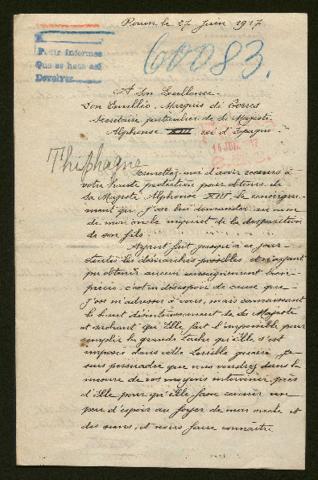 Rouen le 27 Juin 1917
A
Pedir informes
Que se hace así
Devolver
60083.
A Son Excellence
Don Emilio, Marquis de Torres
Secrétaire particulier de Sa Majesté
Alphonse XIII roi d'Espagne
Thiphagne
Permettez-moi d'avoir recours à
votre haute protection pour obtenir de
Sa Majesté Alphonse XIII le renseigne-
ment que j'ose lui demander au nom
de mari au sujet de la disparition
de son fils.
Ayant fait jusqu'à ce jour
toutes les démarches possibles et n'ayant
pu obtenir aucun renseignement bien
précis, c'est en désespoir de cause que
j'ose m'adresser à vous, mais connaissant
le haut désintéressement de Sa Majesté
et sachant qu'Elle fait l'impossible pour
remplir la grande tâche qu'elle s'est
imposée dans cette terrible guerre, je
suis persuadée que vous voudrez dans la
mesure de vos moyens intervenir près
d'Elle pour qu'elle fasse luire un
peu d'espoir au foyer de mon oncle et
des siens, et venir faire connaître